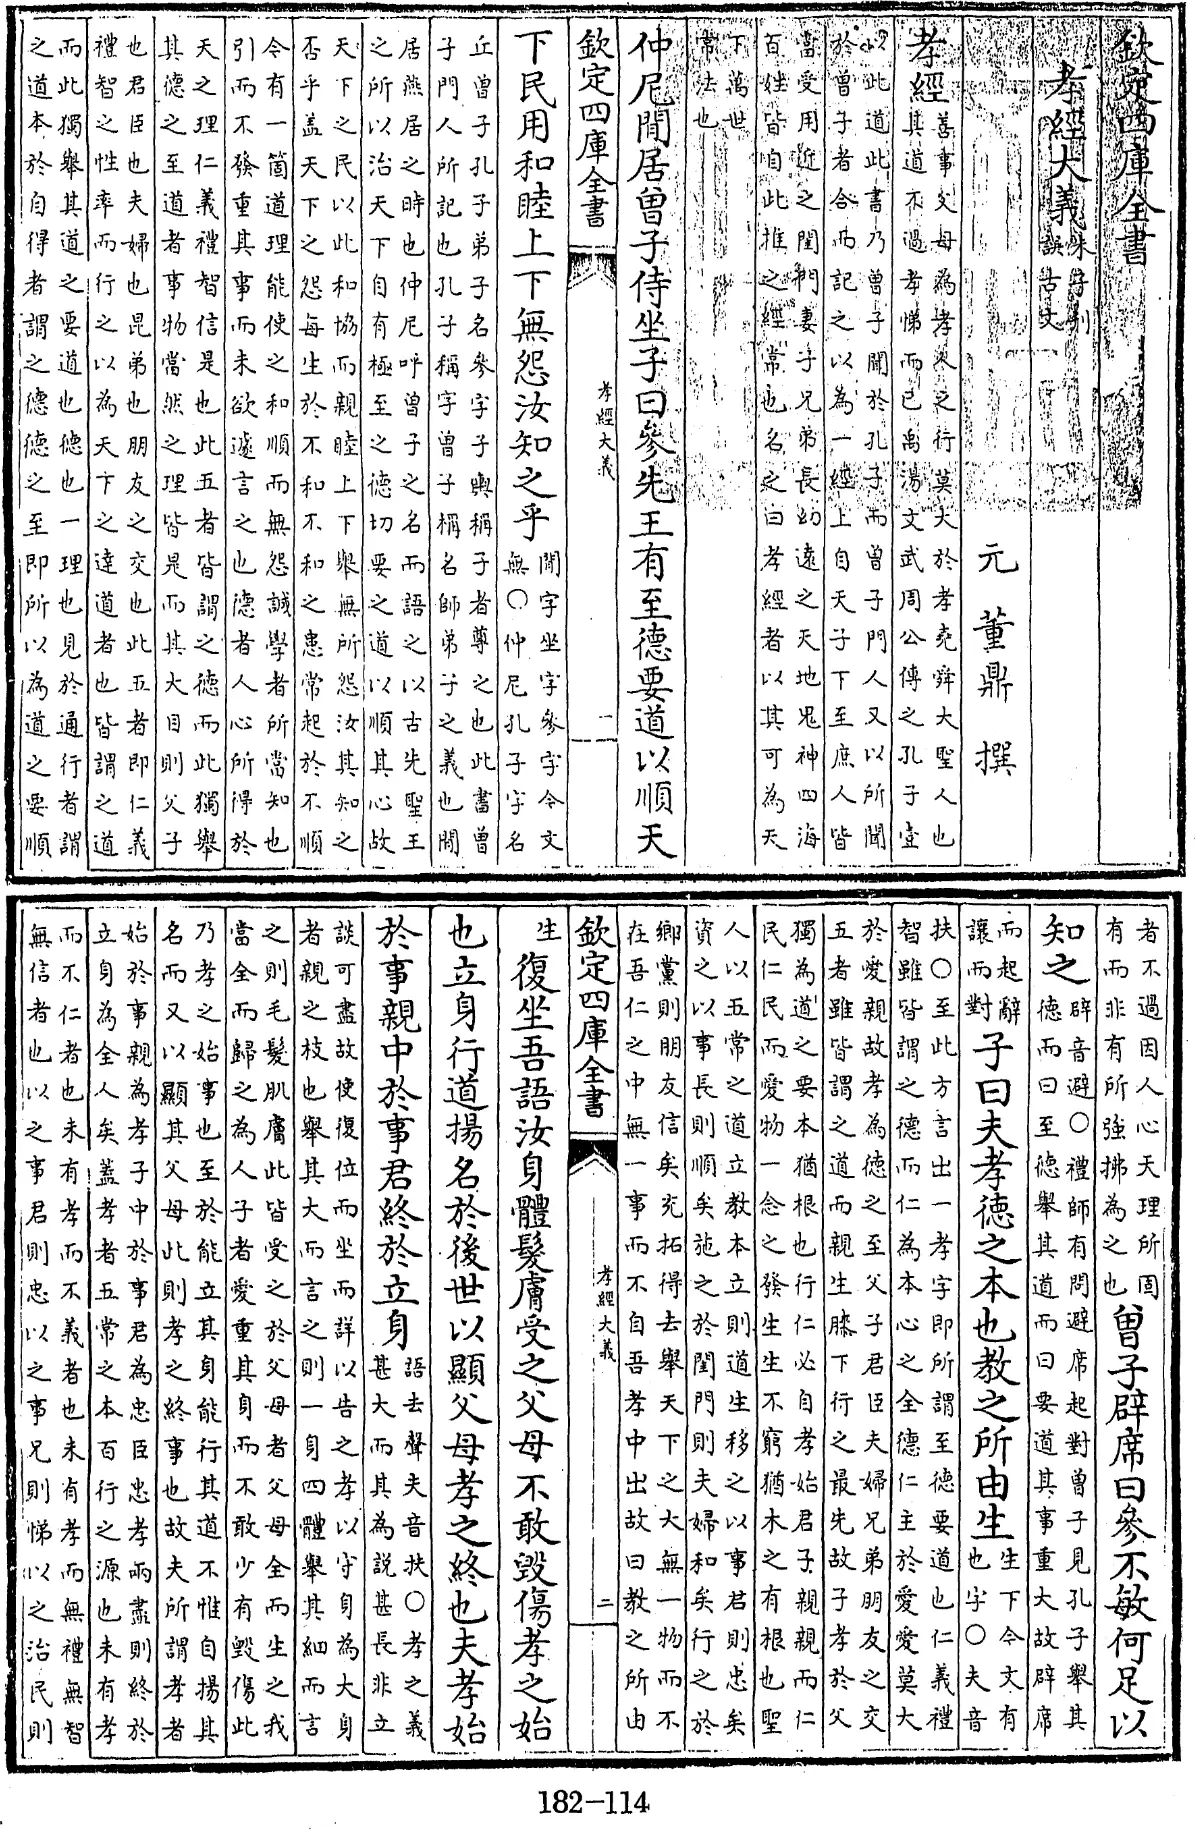 欽定四庫全書
孝經大義
朱子刊
誤古文
元 董鼎 撰
孝經
善事父母為孝人之行莫大於孝堯舜大聖人也
其道不過孝悌而已禹湯文武周公傳之孔子壹
以此道此書乃曾子聞於孔子而曾子門人又以所聞
於曾子者合而記之以為一經上自天子下至庶人皆
當受用近之閨門妻子兄弟長幼遠之天地鬼神四海
百姓皆自此推之經常也名之曰孝經者以其可為天
下萬世
常法也
仲尼閒居曾子侍坐子曰參先王有至德要道以順天
欽定四庫全書
孝經大義
一
下民用和睦上下無怨汝知之乎
閒字坐字參字今文
無○仲尼孔子字名
丘曾子孔子弟子名參字子輿稱子者尊之也此書曾
子門人所記也孔子稱字曾子稱名師弟子之義也閒
居燕居之時也仲尼呼曾子之名而語之以古先聖王
之所以治天下自有極至之德切要之道以順其心故
天下之民以此和協而親睦上下舉無所怨汝其知之
否乎盖天下之怨每生於不和不和之患常起於不順
今有一箇道理能使之和順而無怨誠學者所當知也
引而不發重其事而未欲遽言之也德者人心所得於
天之理仁義禮智信是也此五者皆謂之德而此獨舉
其德之至道者事物當然之理皆是而其大目則父子
也君臣也夫婦也昆弟也朋友之交也此五者即仁義
禮智之性率而行之以為天下之達道者也皆謂之道
而此獨舉其道之要道也德也一理也見於通行者謂
之道本於自得者謂之德德之至即所以為道之要順
者不過因人心天理所固
有而非有所強拂為之也
曾子辟席曰參不敏何足以
知之
辟音避○禮師有問避席起對曾子見孔子舉其
德而曰至德舉其道而曰要道其事重大故辟席
而起辭
讓而對
子曰夫孝德之本也教之所由生
生下今文有
也字○夫音
扶○至此方言出一孝字即所謂至德要道也仁義禮
智雖皆謂之德而仁為本心之全德仁主於愛愛莫大
於愛親故孝為德之至父子君臣夫婦兄弟朋友之交
五者雖皆謂之道而親生膝下行之最先故子孝於父
獨為道之要本猶根也行仁必自孝始君子親親而仁
民仁民而愛物一念之發生生不窮猶木之有根也聖
人以五常之道立教本立則道生移之以事君則忠矣
資之以事長則順矣施之於閨門則夫婦和矣行之於
鄉黨則朋友信矣充拓得去舉天下之大無一物而不
在吾仁之中無一事而不自吾孝中出故曰教之所由
欽定四庫全書
孝經大義
二
生
復坐吾語汝身體髮膚受之父母不敢毀傷孝之始
也立身行道揚名於後世以顯父母孝之終也夫孝始
於事親中於事君終於立身
語去聲夫音扶○孝之義
甚大而其為說甚長非立
談可盡故使復位而坐而詳以告之孝以守身為大身
者親之枝也舉其大而言之則一身四體舉其細而言
之則毛髮肌膚此皆受之於父母者父母全而生之我
當全而歸之為人子者愛重其身而不敢少有毀傷此
乃孝之始事也至於能立其身能行其道不惟自揚其
名而又以顯其父母此則孝之終事也故夫所謂孝者
始於事親為孝子中於事君為忠臣忠孝兩盡則終於
立身為全人矣蓋孝者五常之本百行之源也未有孝
而不仁者也未有孝而不義者也未有孝而無禮無智
無信者也以之事君則忠以之事兄則悌以之治民則
182-114